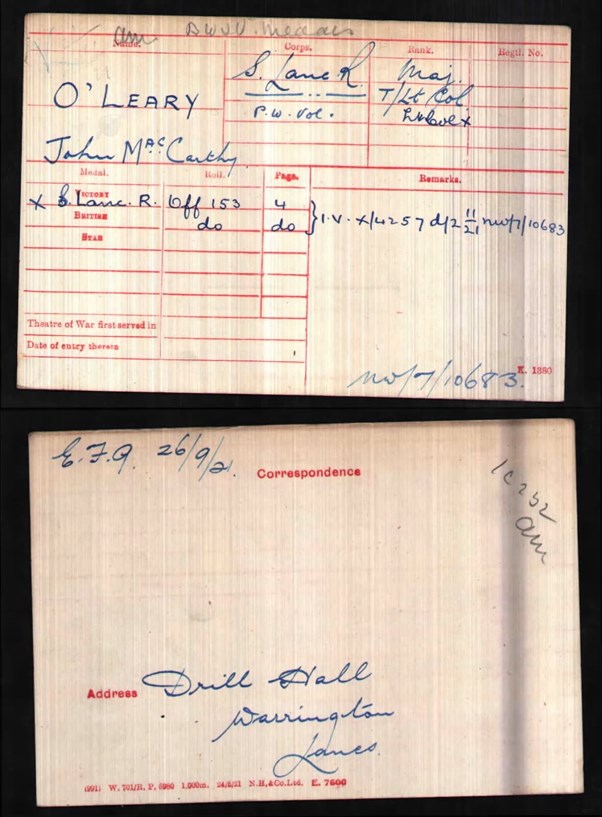 BWSV. medals
am
Name.
Corps.
Rank.
Regtl. No.
O'LEARY
John MacCarthy
S. Lanc. R.
P.W. Vol.
Maj.
T/Lt Col.
Lt Col x
Medal.
Roll.
Page.
Remarks.
VICTORY
x S. Lanc. R. Off 153 4
BRITISH do do
} I.V. x/4257 d/2 11/21 nw/7/10683
STAR
Theatre of War first served in
Date of entry therein
K. 1380
nw/7/10683.
E.F.9. 26/9/21.
Correspondence
am
Address Drill Hall
Warrington
Lancs.
(991) W. 701/R.P. 6980 1,000m. 24/5/21 N.H.&Co.Ltd. E. 7600